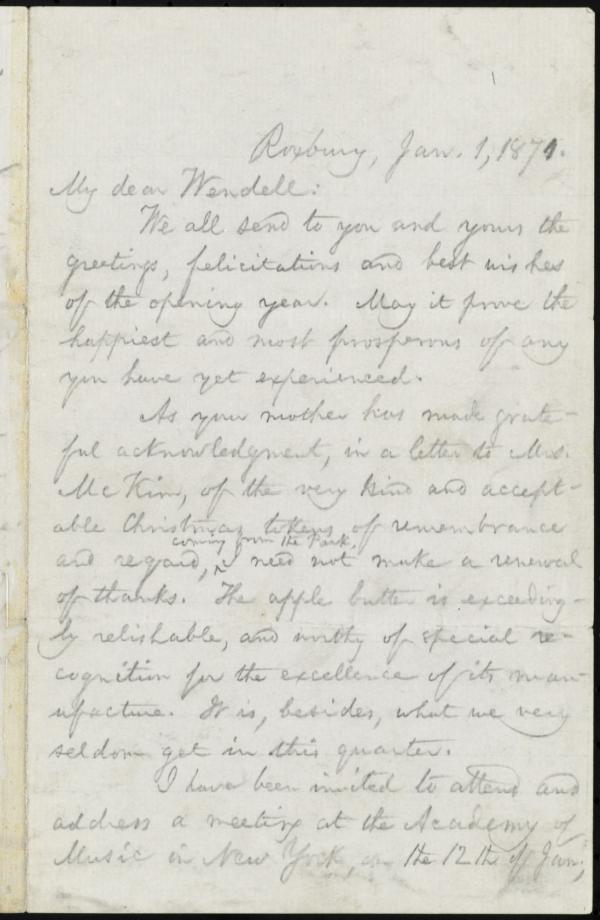 Roxbury, Jan. 1, 1871.
My dear Wendell:
We all send to you and yours the
greetings, felicitations and best wishes
of the opening year. May it prove the
happiest and most prosperous of any
you have yet experienced.
As your mother has made grate-
ful acknowledgment, in a letter to Mrs.
McKim, of the very kind and accept-
able Christmas tokens of remembrance
coming from the Park,
and regard, ^ I need not make a renewal
of thanks. The apple butter is exceeding-
ly relishable, and worthy of special re-
cognition for the excellence of its man-
ufacture. It is, besides, what we very
seldom get in this quarter.
I have been invited to attend and
address a meeting at the Academy of
Music in New York, on the 12th of Jan.,